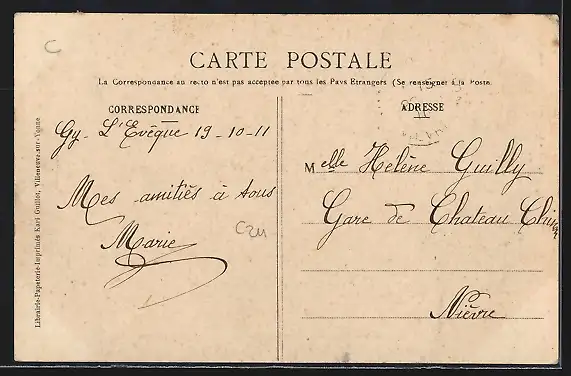 C
CARTE POSTALE
La Correspondance au recto n'est pas acceptée par tous les Pays Etrangers (Se renseigner à la Poste.
CORRESPONDANCE
ADRESSE
Gy-L'Evêque 19-10-11
Mes amitiés à tous
Marie
Melle Helène Guilly
Gare de Chateau Chi
Nièvre
Librairie-Papeterie-Imprimés Karl Guillot, Villeneuve-sur-Yonne